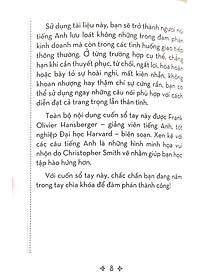 Sử dụng tài liệu này, bạn sẽ trở thành người nói
tiếng Anh lưu loát không những trong đàm phán
kinh doanh mà còn trong các tình huống giao tiếp
thông thường. Ở từng trường hợp cụ thể, chẳng
hạn khi thuyết phục, từ chối, ngắt lời, hóa hoãn
hoặc bày tỏ sự hoài nghi, mất kiên nhẫn, không
khoan nhượng hay thậm chí sự cứng rắn, bạn có
thể sử dụng ngay những câu nói phù hợp với cách
diễn đạt cả trang trọng lẫn thân tình.
Toàn bộ nội dung cuốn sổ tay này được Frank
Olivier Hansberger – giảng viên tiếng Anh, tốt
nghiệp Đại học Harvard – biên soạn. Xen kẽ với
các câu tiếng Anh là những hình minh họa vui
nhộn do Christopher Smith vẽ nhằm giúp bạn học
tập hào hứng hơn.
Với cuốn sổ tay này, chắc chắn bạn đang nắm
trong tay chìa khóa để đàm phán thành công!
8